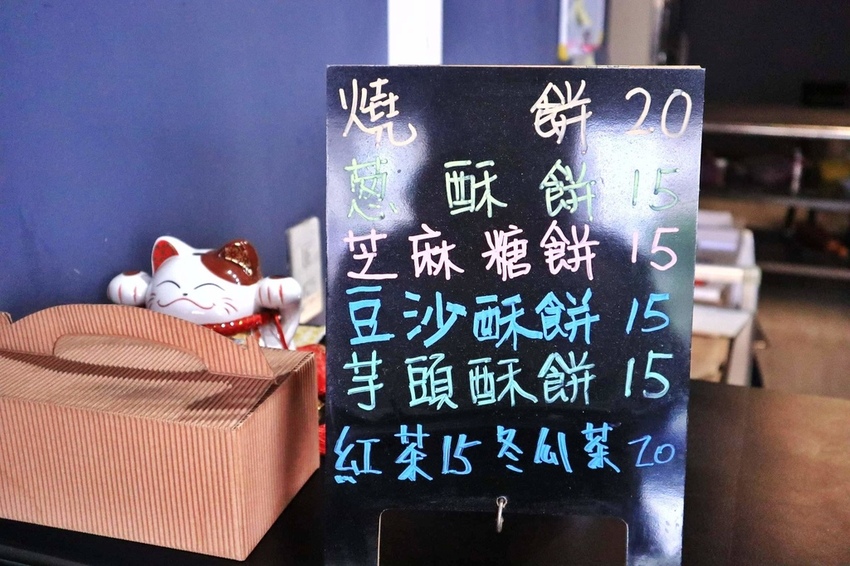 燒餅 20
蔥酥餅 15
芝麻糖餅 15
豆沙酥餅 15
芋頭酥餅 15
紅茶15 冬瓜茶20